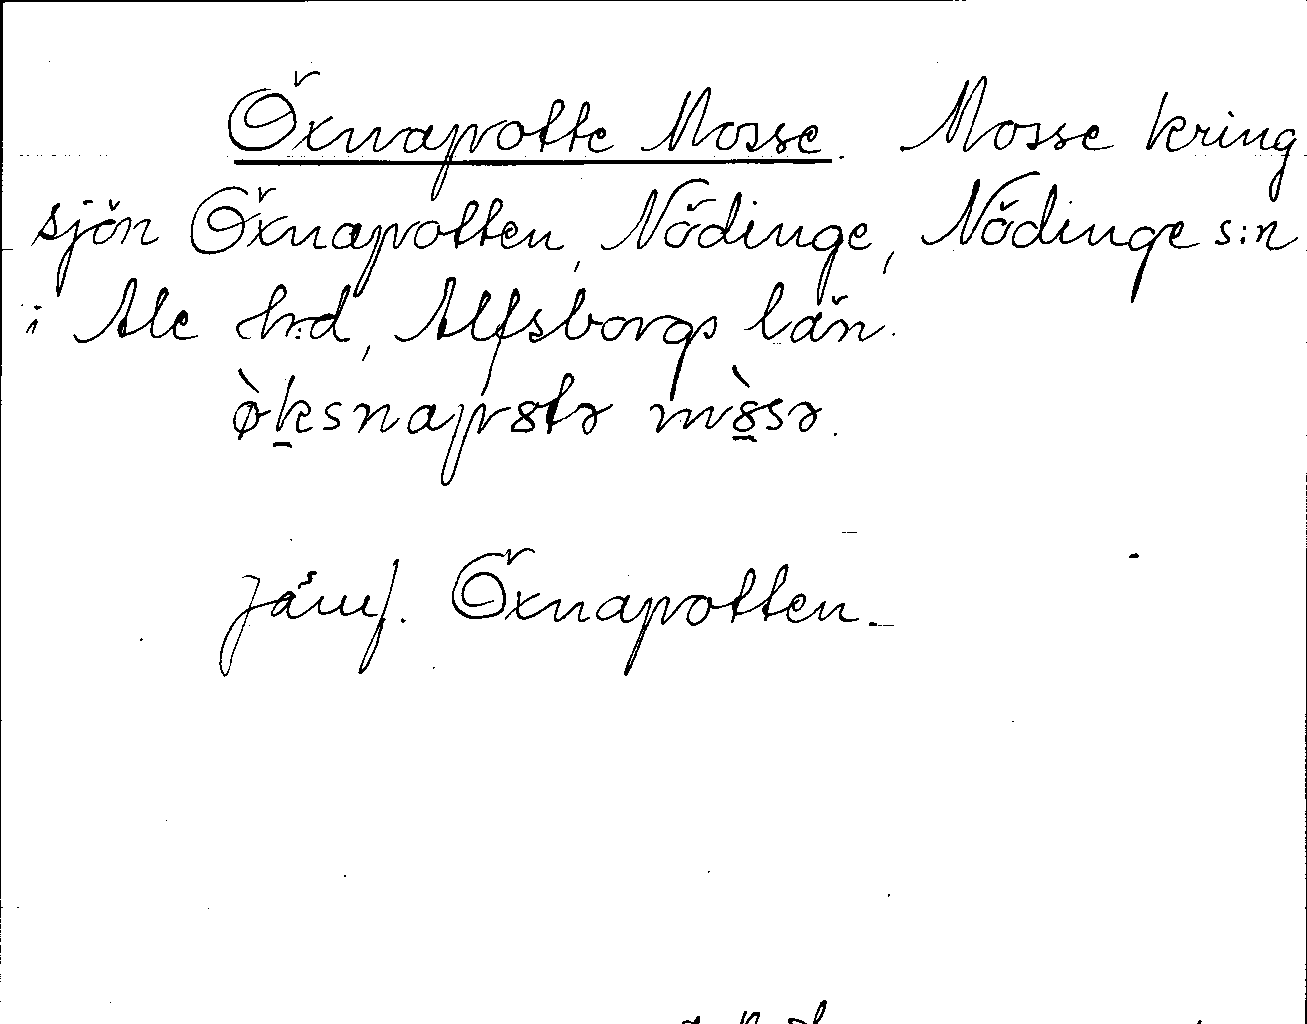 Öxnapotte Mosse. Mosse kring
sjön Öxnapotten, Nödinge, Nödinge s:n
i Ale hrd, Älfsborgs län.
ø̀k̠snapȣtə mȣ̠̀sə.
Jämf. Öxnapotten.